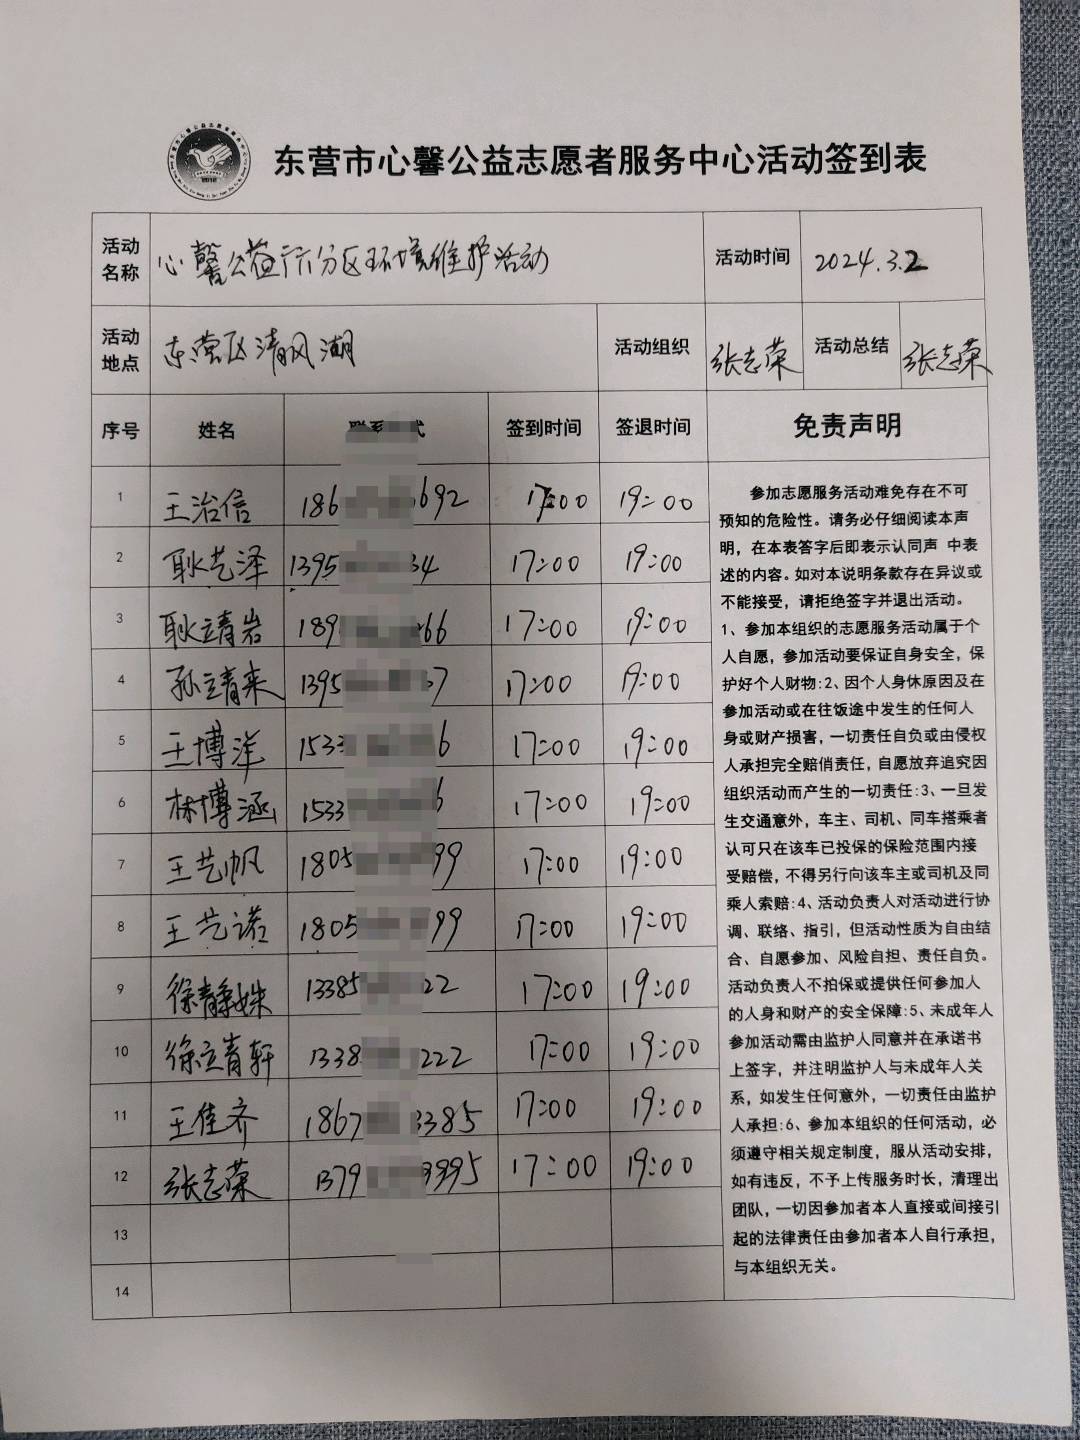 东营市心馨公益志愿者服务中心活动签到表
活动名称 心馨公益行六分区环境维护活动 活动时间 2024.3.2
活动地点 东营区清风湖 活动组织 张志荣 活动总结 张志荣
序号 姓名 签到时间 签退时间 免责声明
1 王治信 186 692 17:00 19:00
2 耿艺泽 1395 34 17:00 19:00
3 耿靖岩 189 66 17:00 19:00
4 孙靖来 1395 7 17:00 19:00
5 王博洋 1533 6 17:00 19:00
6 林博涵 1533 6 17:00 19:00
7 王艺帆 1805 99 17:00 19:00
8 王艺诺 1805 99 17:00 19:00
9 徐静姝 13385 22 17:00 19:00
10 徐靖轩 1338 222 17:00 19:00
11 王佳齐 1867 3385 17:00 19:00
12 张志荣 1379 3995 17:00 19:00
13
14
参加志愿服务活动难免存在不可
预知的危险性。请务必仔细阅读本声
明，在本表签字后即表示认同声 中表
述的内容。如对本说明条款存在异议或
不能接受，请拒绝签字并退出活动。
1、参加本组织的志愿服务活动属于个
人自愿，参加活动要保证自身安全，保
护好个人财物:2、因个人身休原因及在
参加活动或在往饭途中发生的任何人
身或财产损害，一切责任自负或由侵权
人承担完全赔俏责任，自愿放弃追究因
组织活动而产生的一切责任:3、一旦发
生交通意外，车主、司机、同车搭乘者
认可只在该车已投保的保险范围内接
受赔偿，不得另行向该车主或司机及同
乘人索赔:4、活动负责人对活动进行协
调、联络、指引，但活动性质为自由结
合、自愿参加、风险自担、责任自负。
活动负责人不拍保或提供任何参加人
的人身和财产的安全保障:5、未成年人
参加活动需由监护人同意并在承诺书
上签字，并注明监护人与未成年人关
系，如发生任何意外，一切责任由监护
人承担:6、参加本组织的任何活动，必
须遵守相关规定制度，服从活动安排，
如有违反，不予上传服务时长，清理出
团队，一切因参加者本人直接或间接引
起的法律责任由参加者本人自行承担，
与本组织无关。